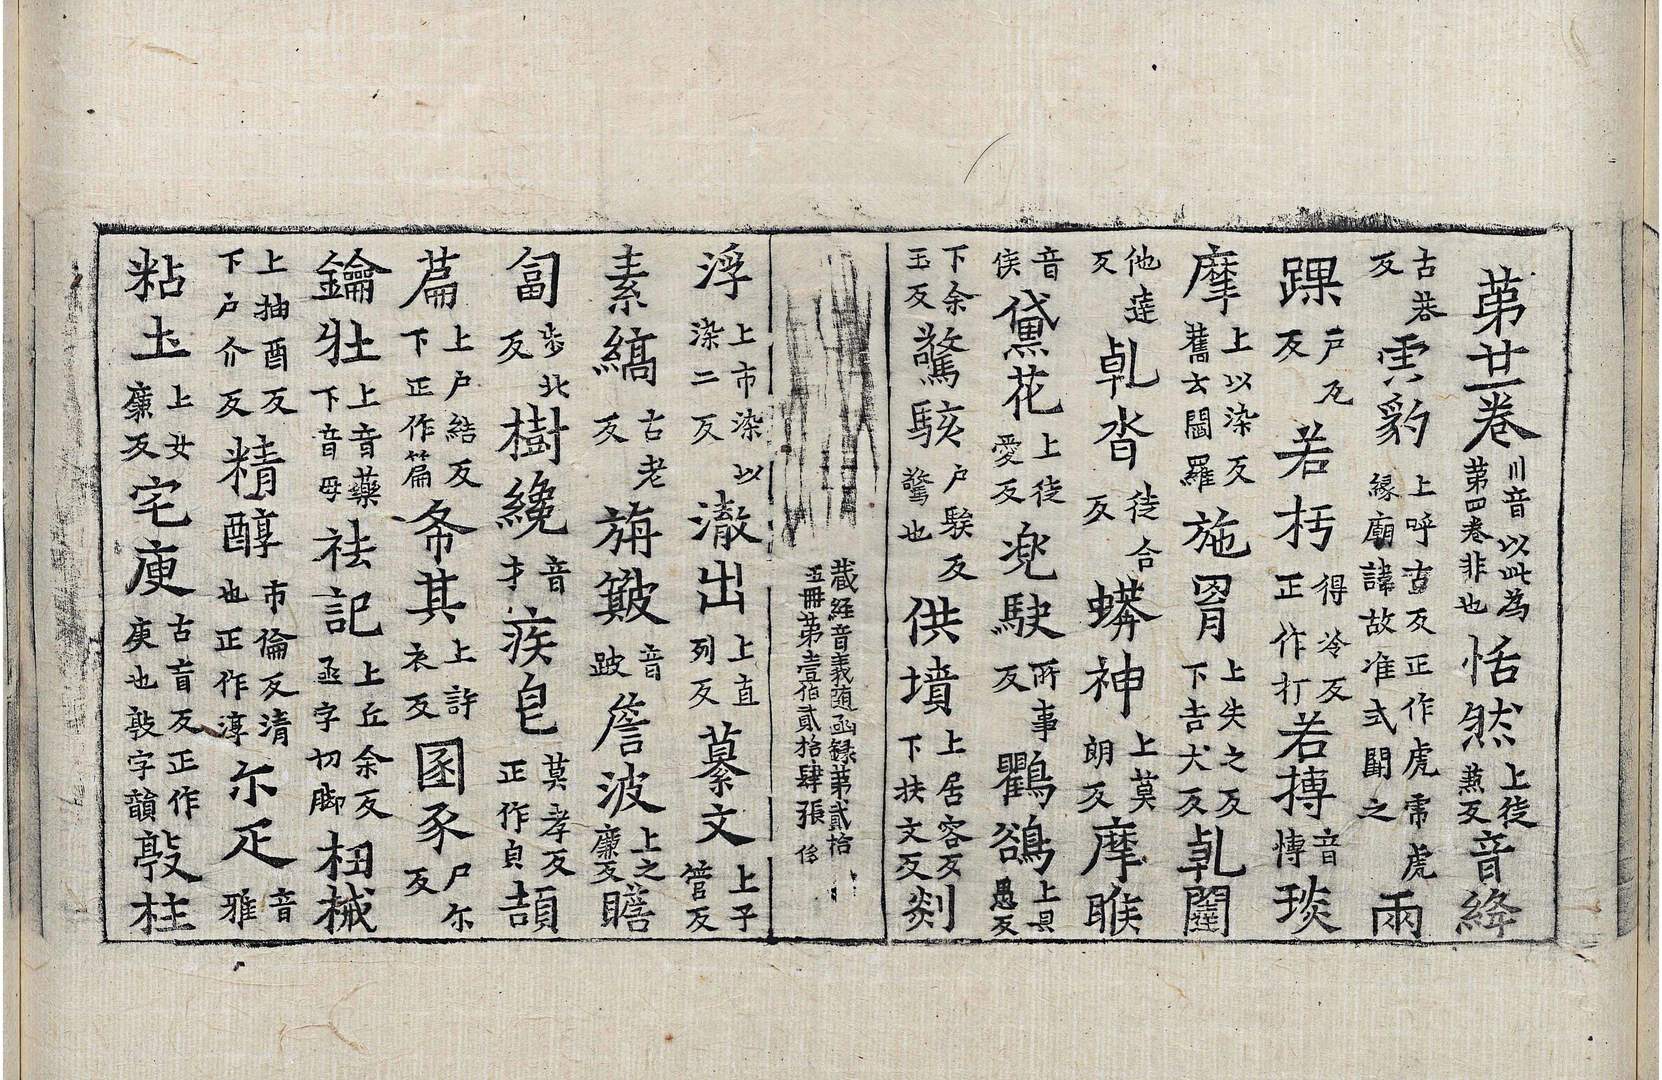 第廿卷川音以此為第四卷非也恬然上徒燕反音絳
古巷反䖈豹上呼古反正作虎虍虎緣廟諱故准式闕之兩
踝戸瓦反若杇得冷反正作打若摶音慱琰
摩上以染反舊云閻羅施罥上失之反下吉犬反乹闥
他達反乹沓徒合反蟒神上莫朗反摩睺
音侯黛花上徒愛反兇駛所事反鸜鵒上具愚反
下余玉反驚駭戶騃反驚也供墳上居容反下扶文反剡
藏經音義隨函錄第貳拾
五冊第壹伯貳拾肆張 俻
浮上市染以染二反澈出上直列反纂文上子管反
素縞古老反旃簸音跛詹波上之廉反瞻
匐步北反樹纔音才疾皀莫孝反正作皃頡
萹上戶結反下正作篇㡓其上許衣反圂豕尸尔反
鑰壯上音藥下音母祛記上丘余反丞字切脚杻械
上抽酉反下戶介反精醇市倫反清也正作淳尓疋音雅
粘土上女廉反宅㢏古盲反正作庚也㪟字韻㪟柱